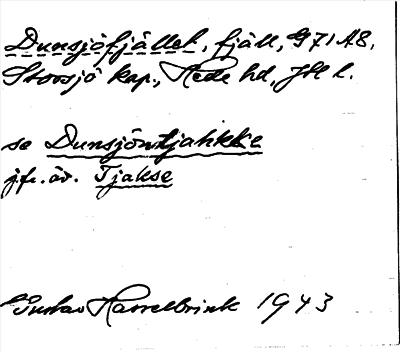 Dunsjöfjället, fjäll, G71 A8,
Storsjö kap., Hede hd, Jtl l.
se Dunsjöntjahkke
jfr. äv. Tjakse
Gustav Hasselbrink 1943